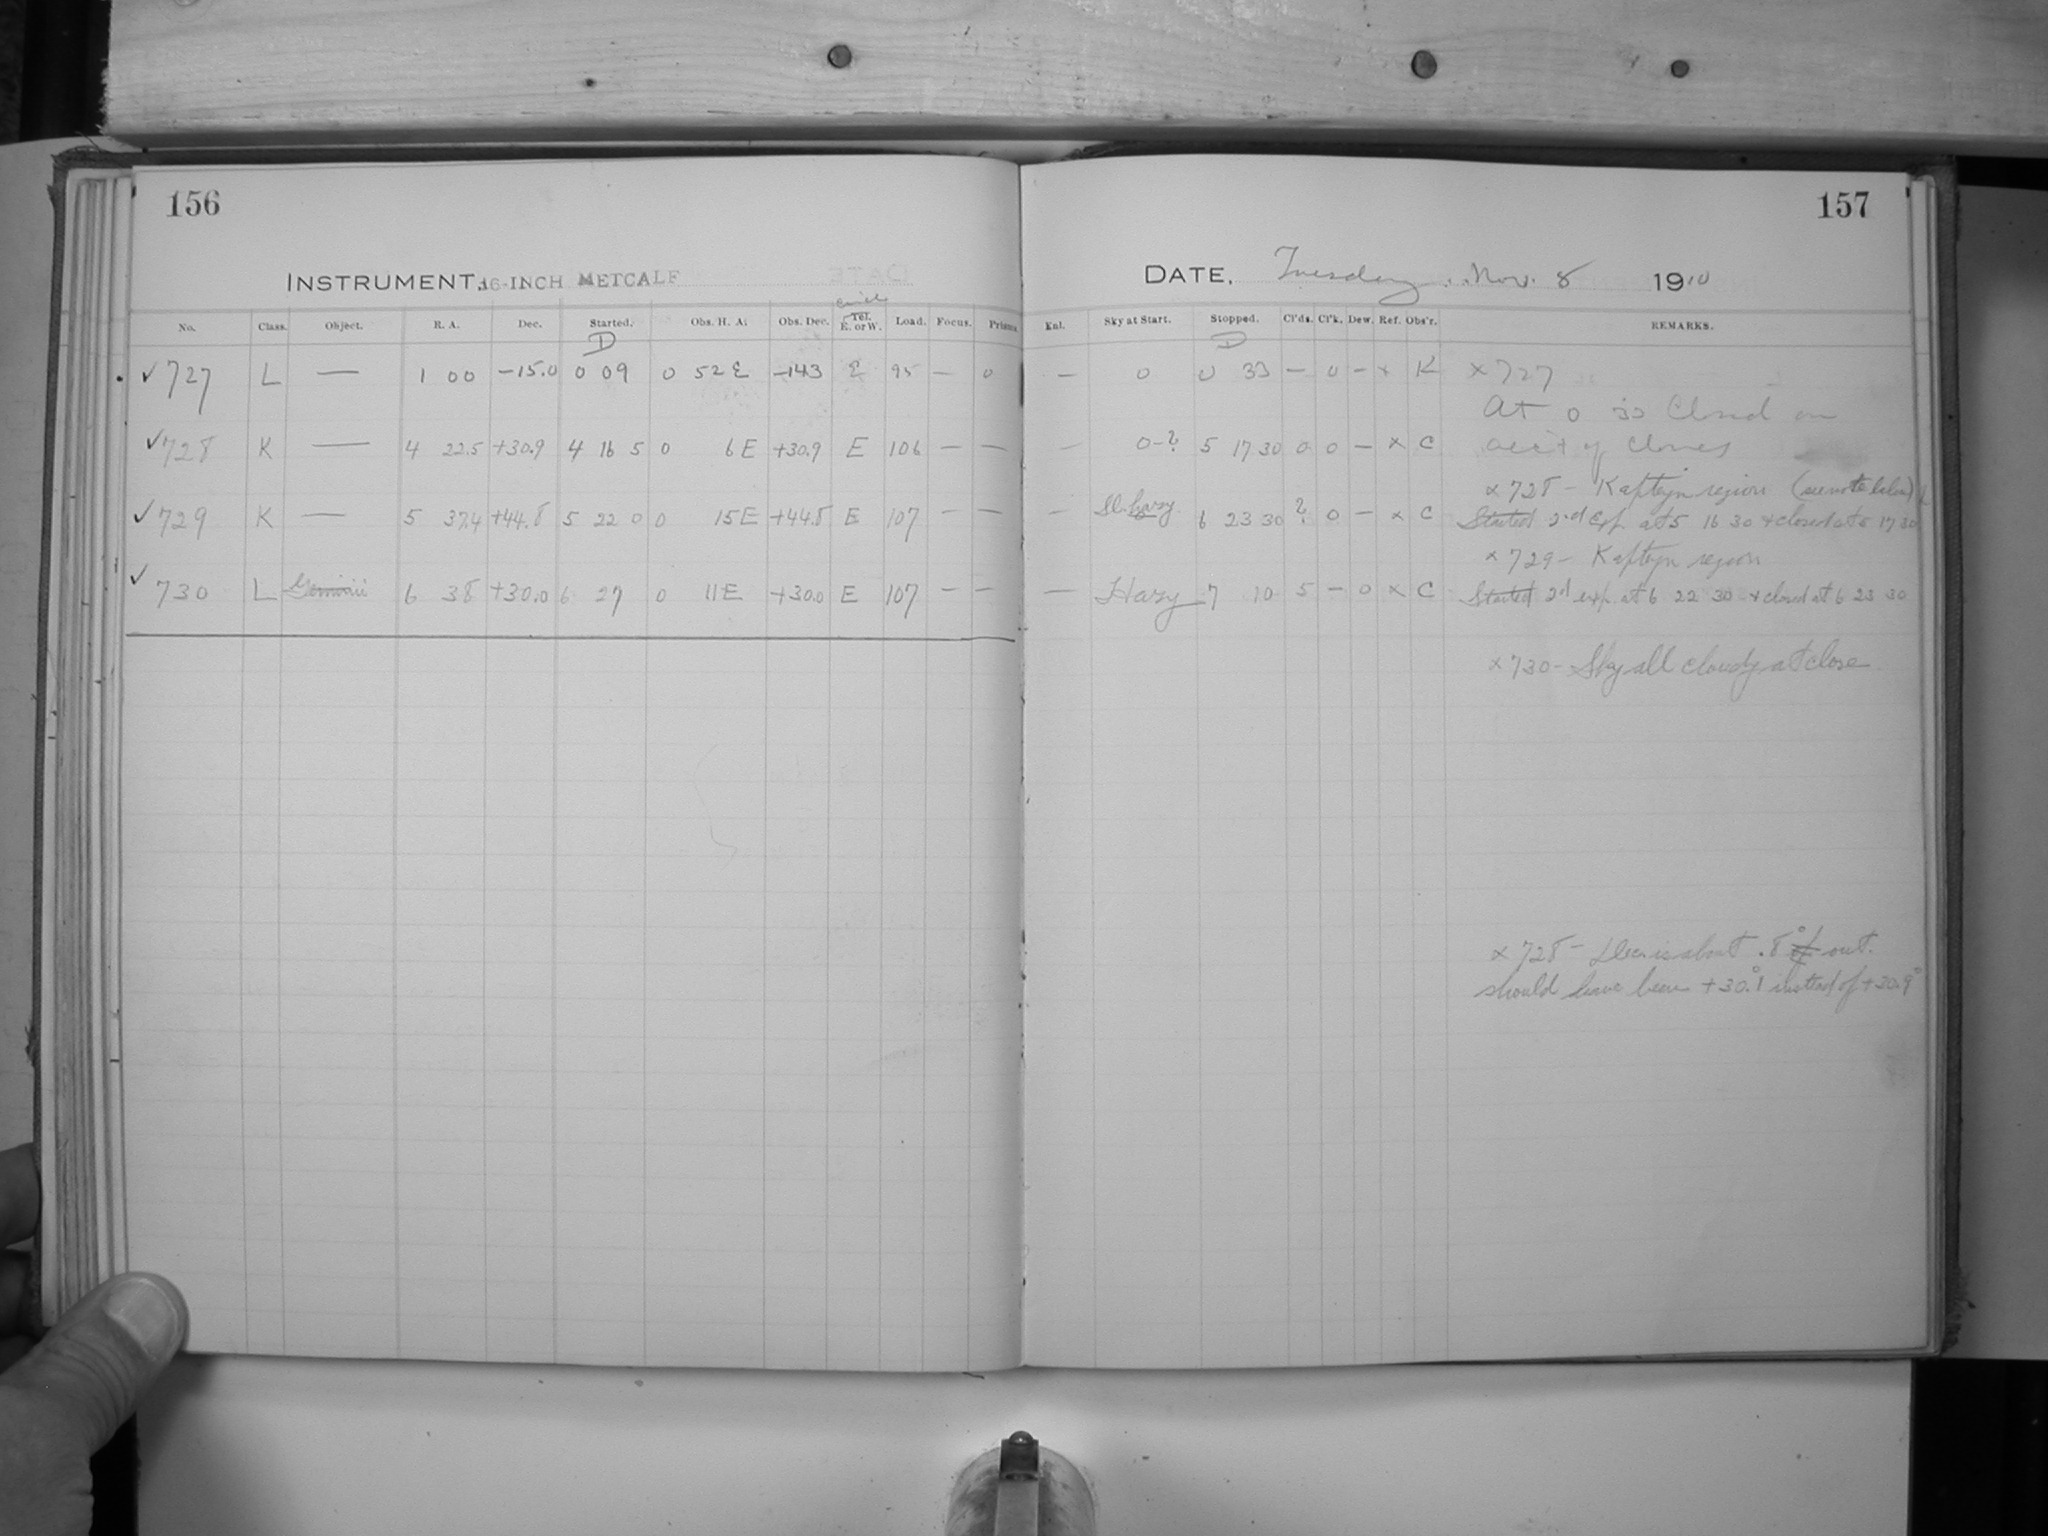 156
157
INSTRUMENT, 16-INCH METCALF
DATE, Tuesday, Nov. 8 1910
No. Class. Object. R. A. Dec. Started. Obs. H. A. Obs. Dec. Circle Tel. E. or W. Load. Focus. Prisms. Enl. Sky at Start. Stopped. Cl'ds. Cl'k. Dew. Ref. Obs'r. REMARKS.
D D
✓ 727 L — 1 00 -15.0 0 09 0 52 E -14.3 E 95 — 0 — 0 0 33 — 0 — x K x 727
At 0 33 Closed on
✓ 728 K — 4 22.5 +30.9 4 16 5 0 6 E +30.9 E 106 — — — 0-? 5 17 30 0 0 — x C acc't of clouds
x 728 - Kapteyn region (see note below)
✓ 729 K — 5 37.4 +44.8 5 22 0 0 15 E +44.8 E 107 — — — Sl. hazy 6 23 30 ? 0 — x C Started 2nd exp. at 5 16 30 & closed at 5 17 30
x 729 - Kapteyn region
✓ 730 L Geminii 6 38 +30.0 6 27 0 11 E +30.0 E 107 — — — Hazy 7 10 5 — 0 x C Started 2d exp. at 6 22 30 & closed at 6 23 30
x 730 - Sky all cloudy at close
x 728 - Dec. is about .8° of out.
should have been +30.°1 instead of +30.9°